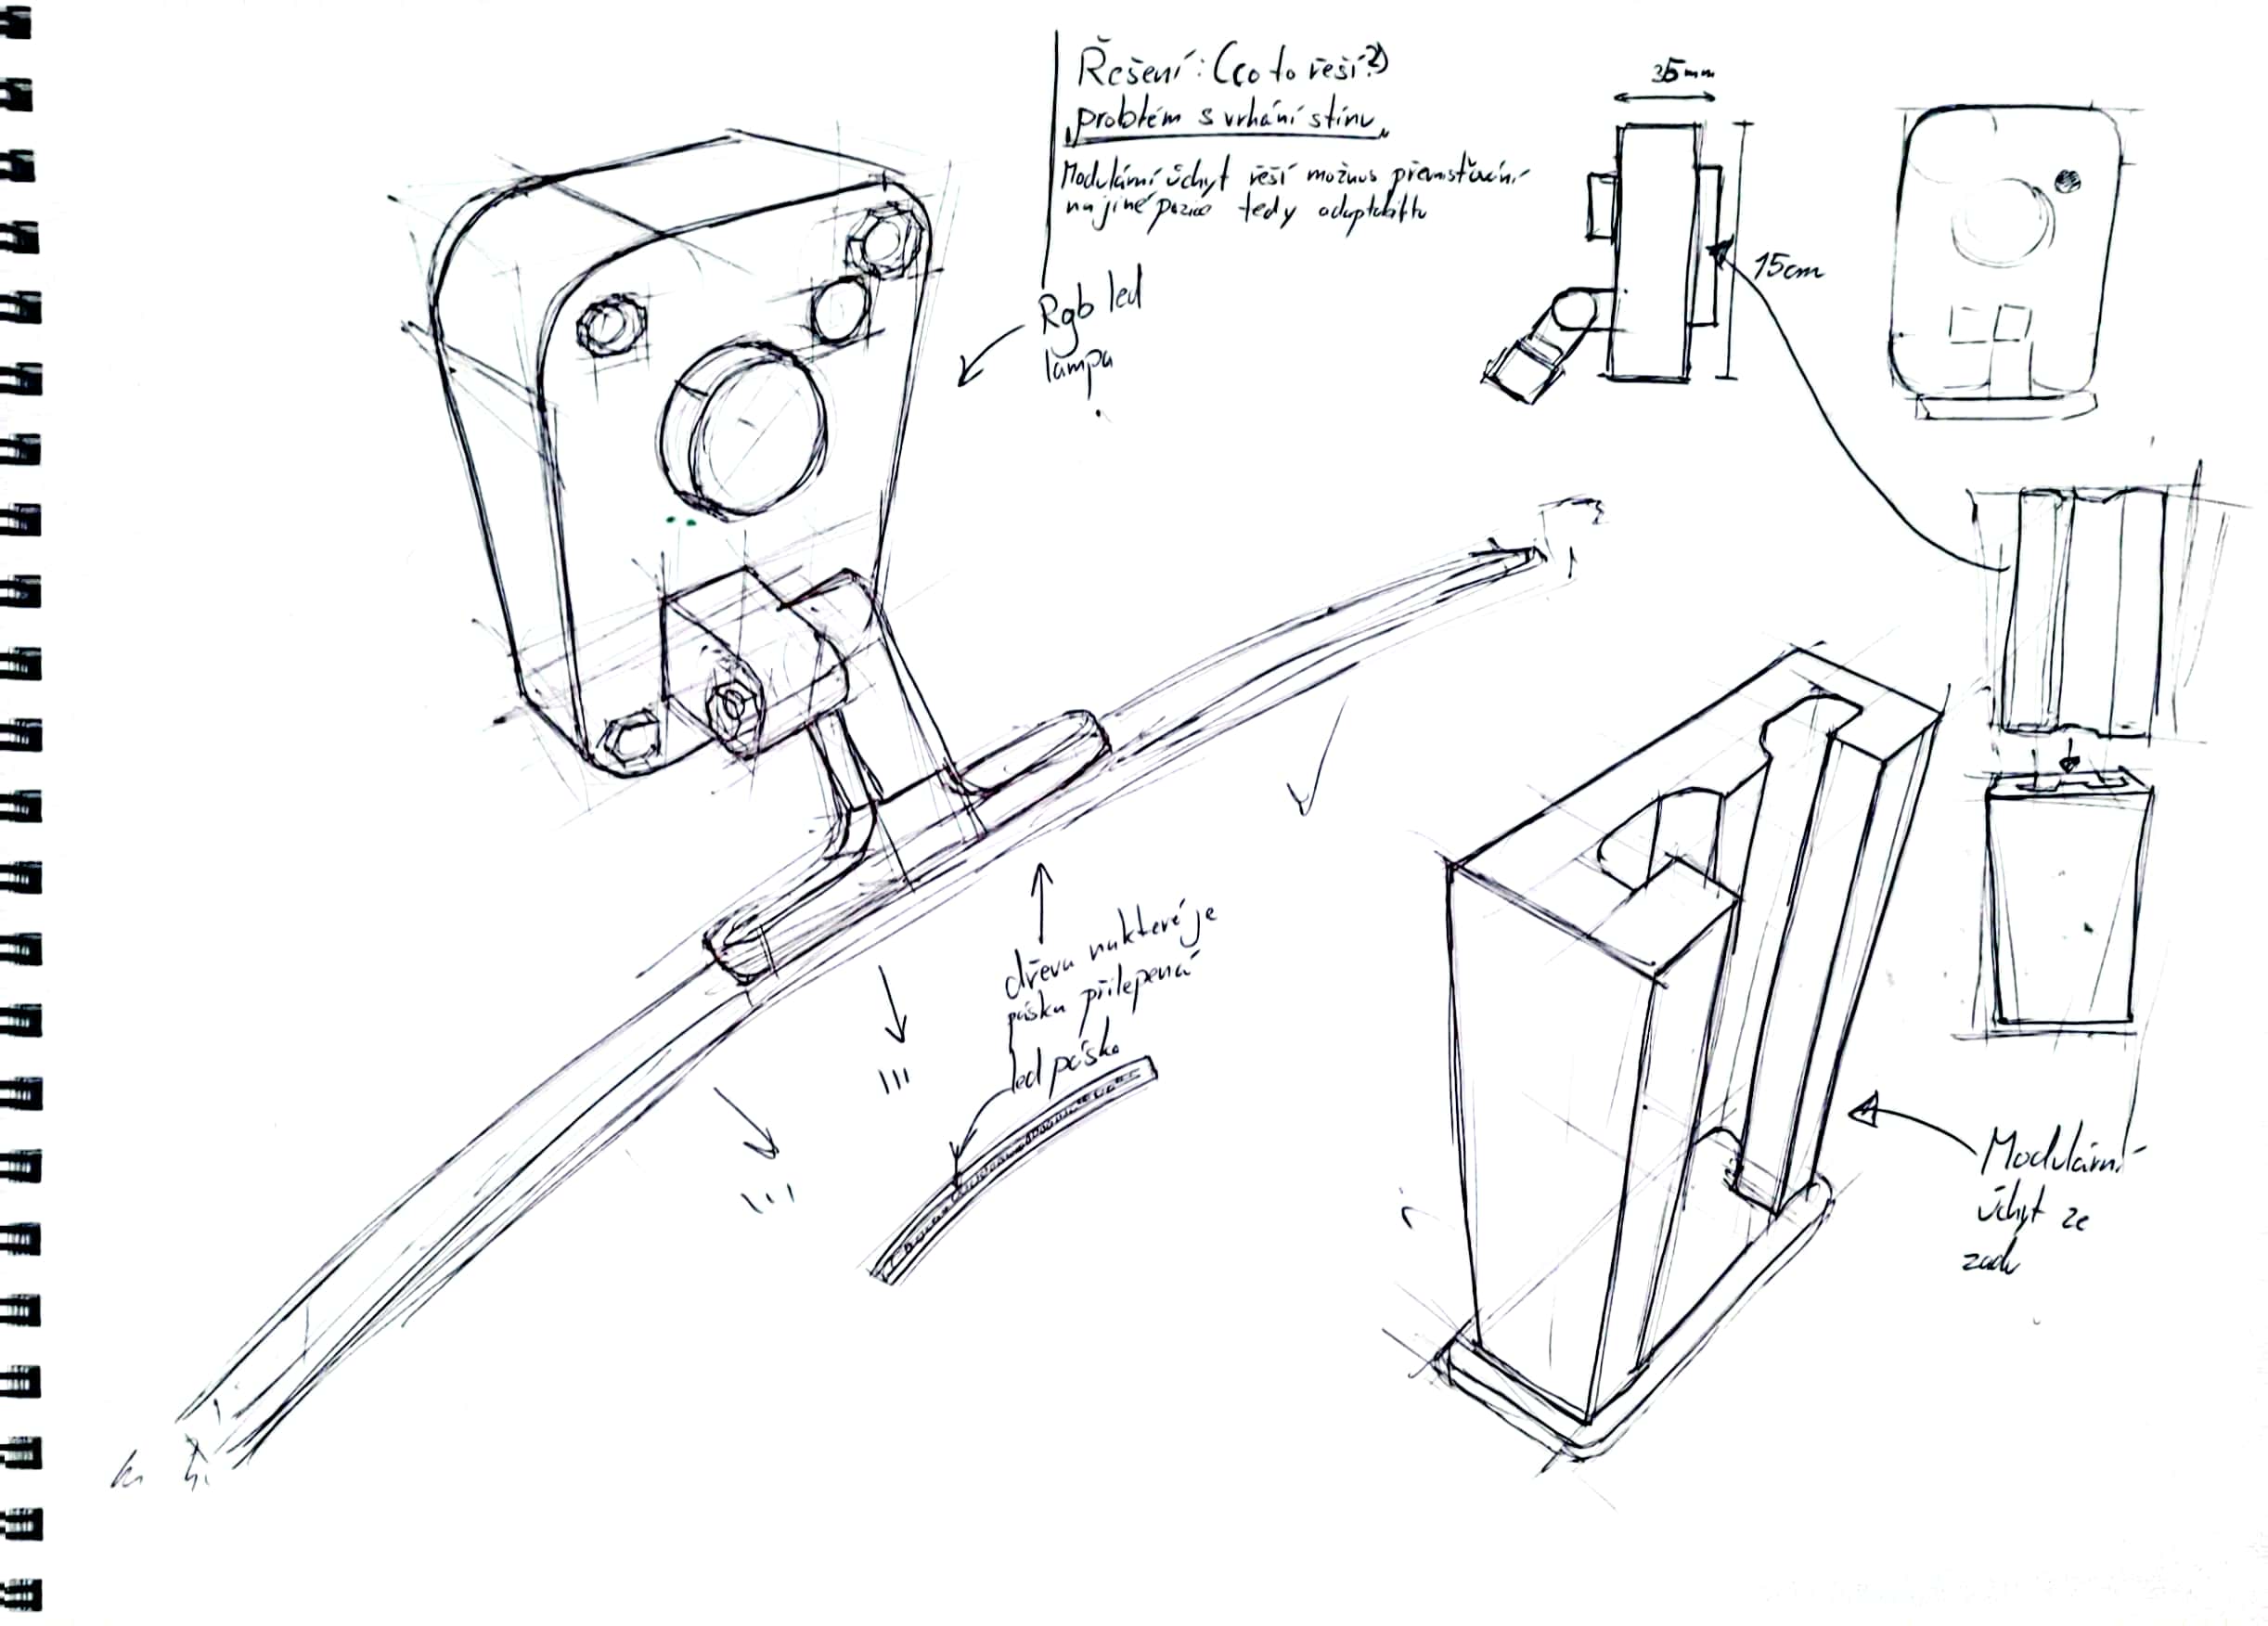 Řešení: (co to řeší?)
„problém s vrhání stínu"
Modulární úchyt řeší možnos přemisťování
na jiné pozice tedy adaptabilitu
Rgb led
lampa
35mm
15cm
dřevu nukteré je
páska přilepená
led páska
Modulární
úchyt ze
zadu